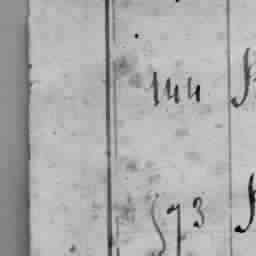 144
573